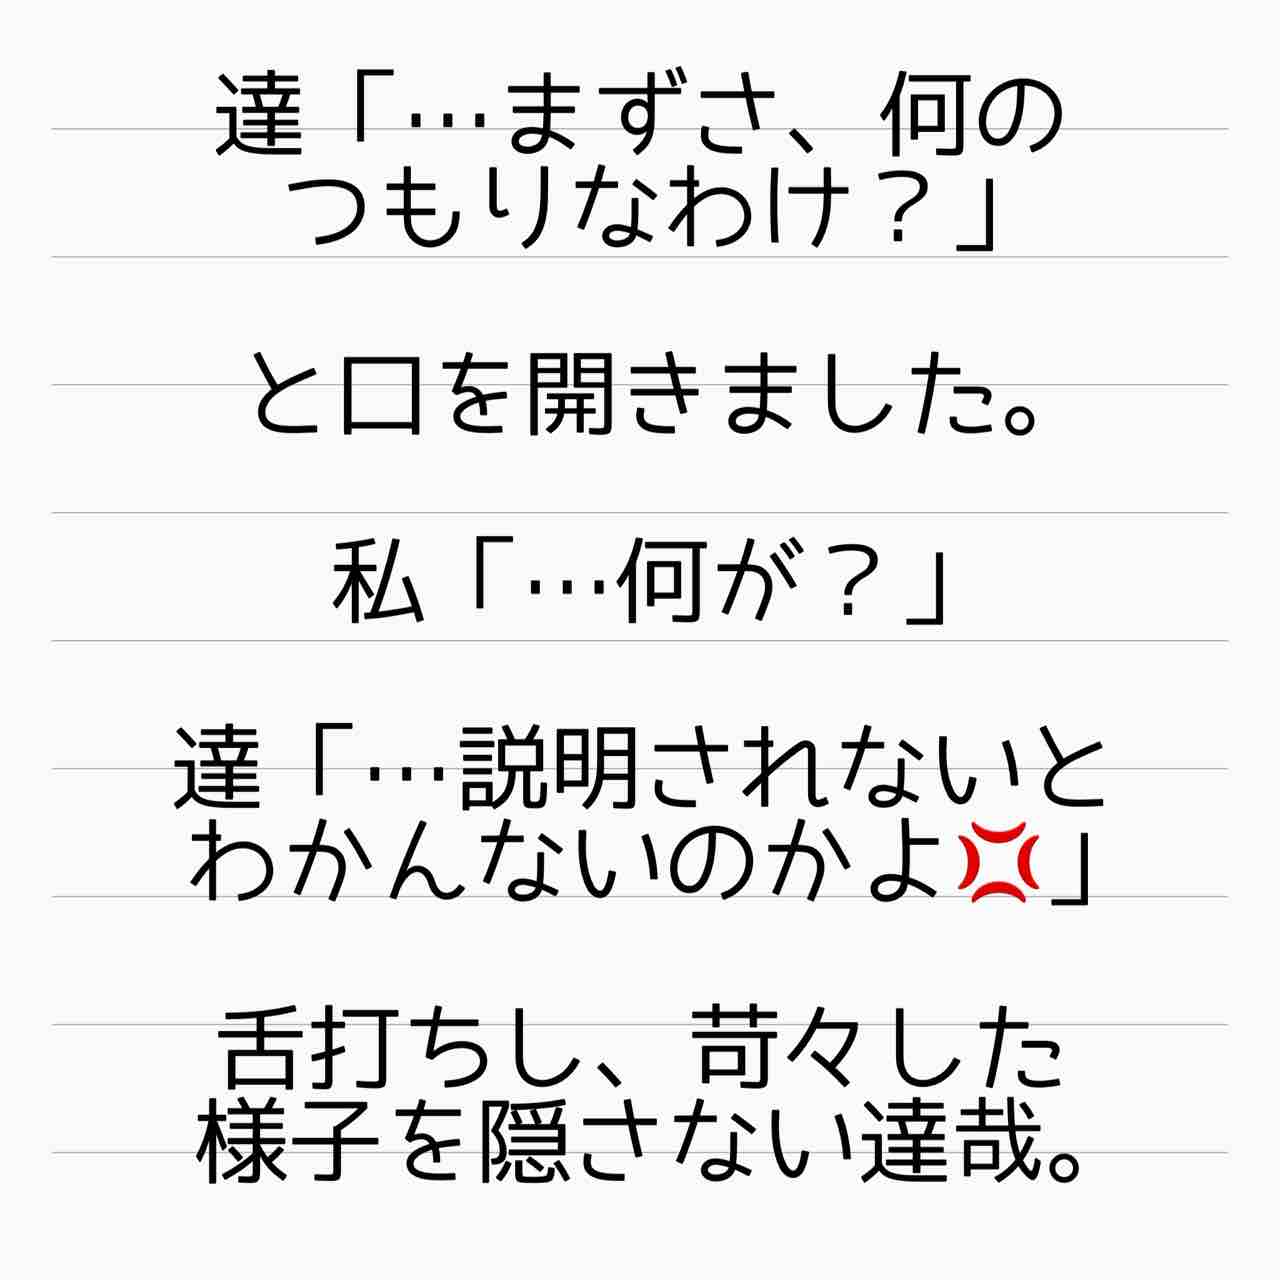 達「…まずさ、何の
つもりなわけ？」
と口を開きました。
私「…何が？」
達「…説明されないと
わかんないのかよ💢」
舌打ちし、苛々した
様子を隠さない達哉。